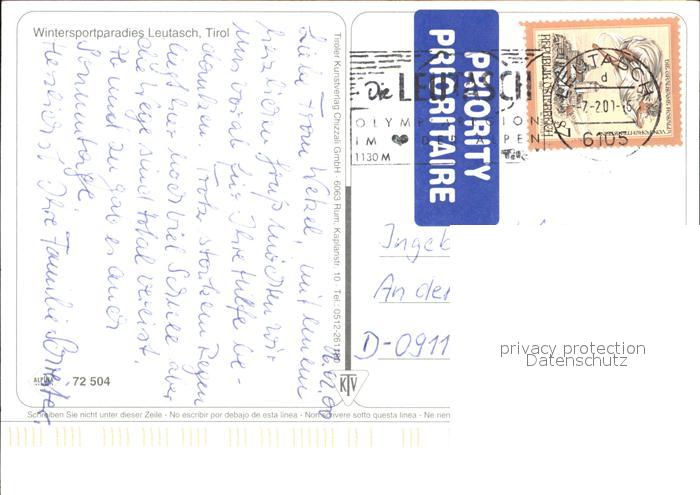 Wintersportparadies Leutasch, Tirol
06.02.00
Liebe Frau Wetzel, mit einem
herzlichen Gruß möchten wir
uns vorab für Ihre Hilfe be-
danken. Trotz starkem Regen
liegt hier noch viel Schnee aber
die Wege sind total vereist.
Hin und zu gab es auch
Sonnentage.
Herzlichst Ihre Familie
Tiroler Kunstverlag Chizzali GmbH · 6063 Rum, Kaplanstr. 10 · Tel.: 0512-261
KTV
ALPINA 72 504
Schreiben Sie nicht unter dieser Zeile - No escribir por debajo de esta linea - Non scrivere sotto questa linea - Ne
PRIORITY
PRIORITAIRE
Die LEUTASCH
OLYMP REGION
IM HERZEN
1130 M
LEUTASCH
d
-7-2.01-15
6105
REPUBLIK ÖSTERREICH
S7
Ingeb
An der
D-0911
privacy protection
Datenschutz